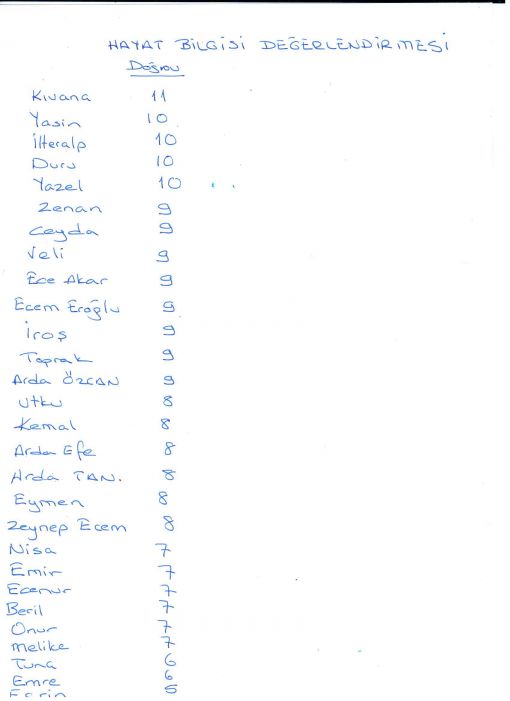 HAYAT BİLGİSİ DEĞERLENDİRMESİ
Doğru
Kıvana 11
Yasin 10
İlteralp 10
Duru 10
Yazel 10
Zenan 9
Ceyda 9
Veli 9
Ece Akar 9
Ecem Eroğlu 9
İroş 9
Toprak 9
Arda ÖZCAN 9
Utku 8
Kemal 8
Arda Efe 8
Arda TAN. 8
Eymen 8
Zeynep Ecem 8
Nisa 7
Emir 7
Ecenur 7
Beril 7
Onur 7
Melike 7
Tuna 6
Emre 6
5